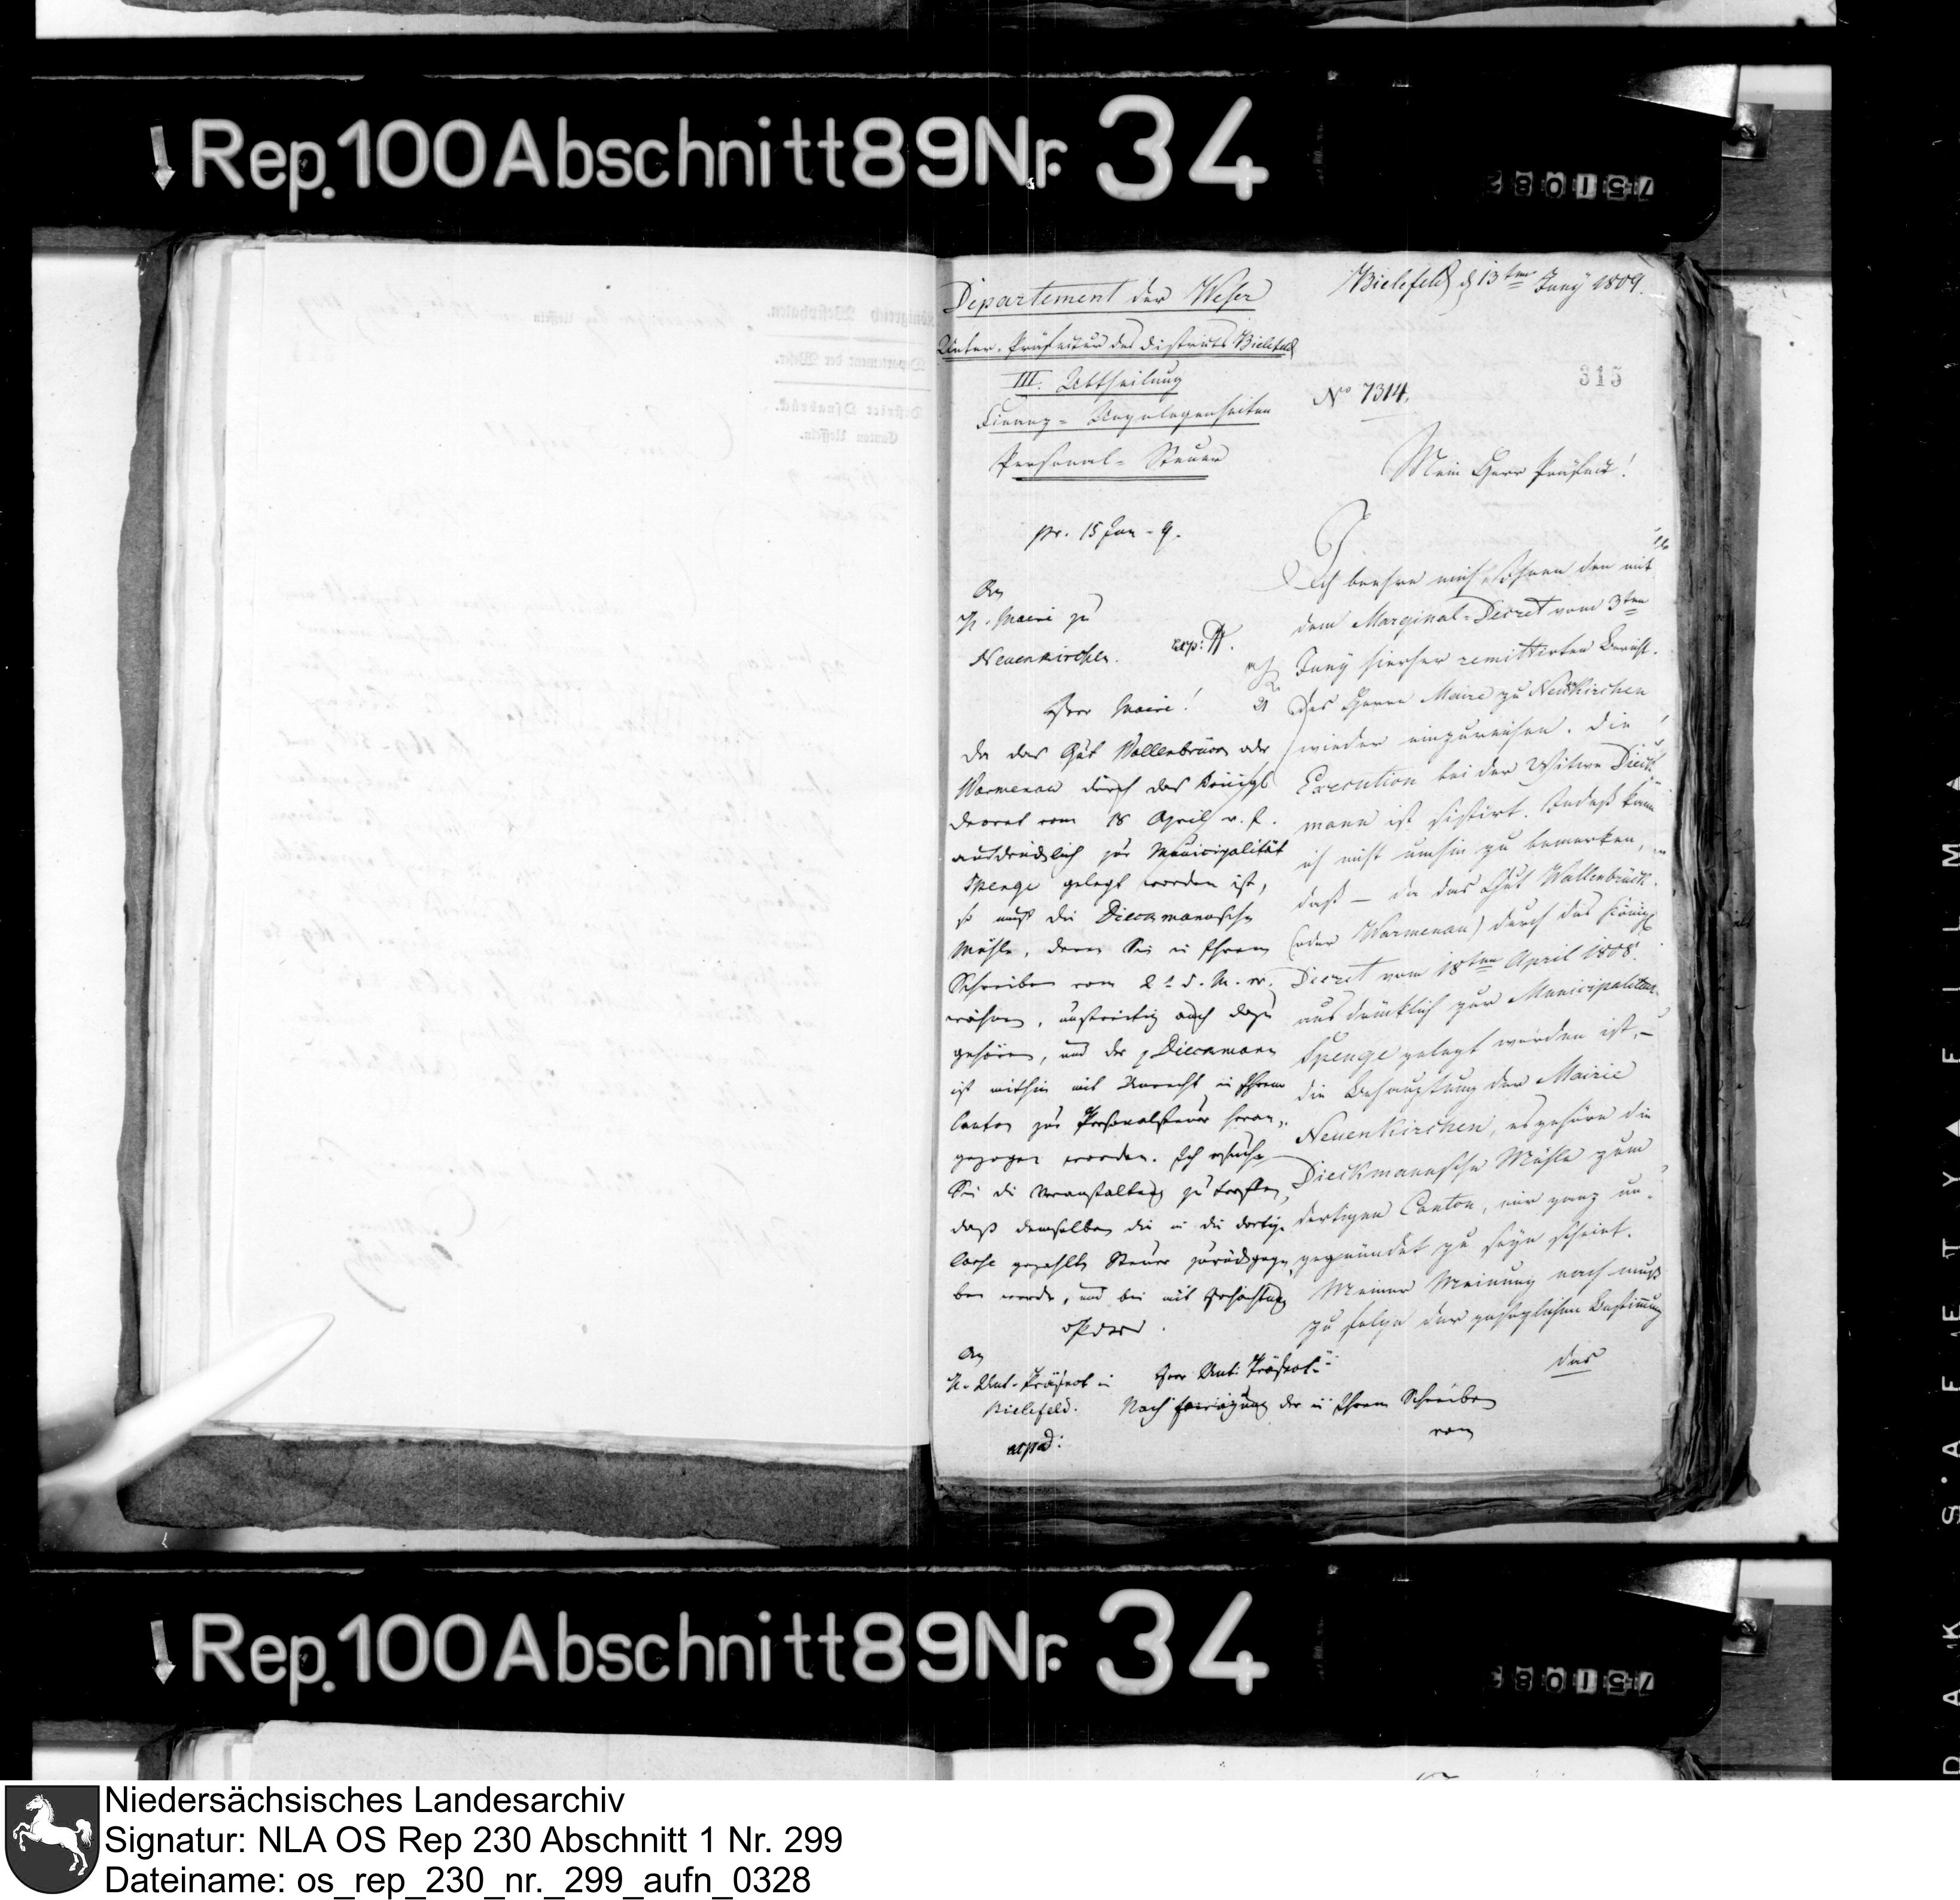 Rep. 100 Abschnitt 89 Nr. 34
751082
Departement der Weser
Unter-Präfectur des Districts Bielefeld
III. Abtheilung
Finanz-Angelegenheiten
Personal-Steuer
Bielefeld d 13ten Juny 1809.
315
No 7314.
Mein Herr Präfect!
pr. 15 Jun. 9.
An
H. Maire zu
Neuenkirchen.
exp:
Herr Maire!
Da das Gut Wallenbrück oder
Warmenau durch das Königl
Decret vom 18 April v. J.
ausdrücklich zur Municipalität
Spenge gelegt worden ist,
so muß die Dieckmannsche
Mühle, deren Sie in Ihrem
Schreiben vom 2t d. M. er-
wähnen, unstreitig auch dazu
gehören, und der p Dieckmann
ist mithin mit Unrecht in Ihrem
Canton zur Personalsteuer heran-
gezogen worden. Ich ersuche
Sie die Veranstaltung zu treffen,
daß demselben die in die dortige
Casse gezahlte Steuer zurückgege-
ben werde, und bin mit Hochachtung
An
H. Unt.-Präfect in
Bielefeld.
Herr Unt. Präfect!
Nach der in Ihrem Schreiben
vom
Ich beehre mich, Ihnen den mit-
dem Marginal-Decret vom 3ten
Juny hierher remittirten Bericht
des Herrn Maire zu Neuenkirchen
wieder einzureichen. Die
Execution bei der Witwe Dieck-
mann ist sistirt. Indeß kann
ich nicht umhin zu bemerken,
daß – da das Gut Wallenbrück
(oder Warmenau) durch das Königl
Decret vom 18ten April 1808
ausdrücklich zur Municipalitaet
Spenge gelegt worden ist, –
die Behauptung der Mairie
Neuenkirchen, es gehöre die
Dieckmannsche Mühle zum
dortigen Canton, mir ganz un-
gegründet zu seyn scheint.
Meiner Meinung nach muß
zu folge der gesetzlichen Bestimmung
das
Rep. 100 Abschnitt 89 Nr. 34
75108
Niedersächsisches Landesarchiv
Signatur: NLA OS Rep 230 Abschnitt 1 Nr. 299
Dateiname: os_rep_230_nr._299_aufn_0328